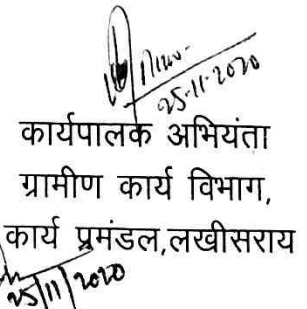 25-11-2020
कार्यपालक अभियंता
ग्रामीण कार्य विभाग,
कार्य प्रमंडल,लखीसराय
25/11/2020